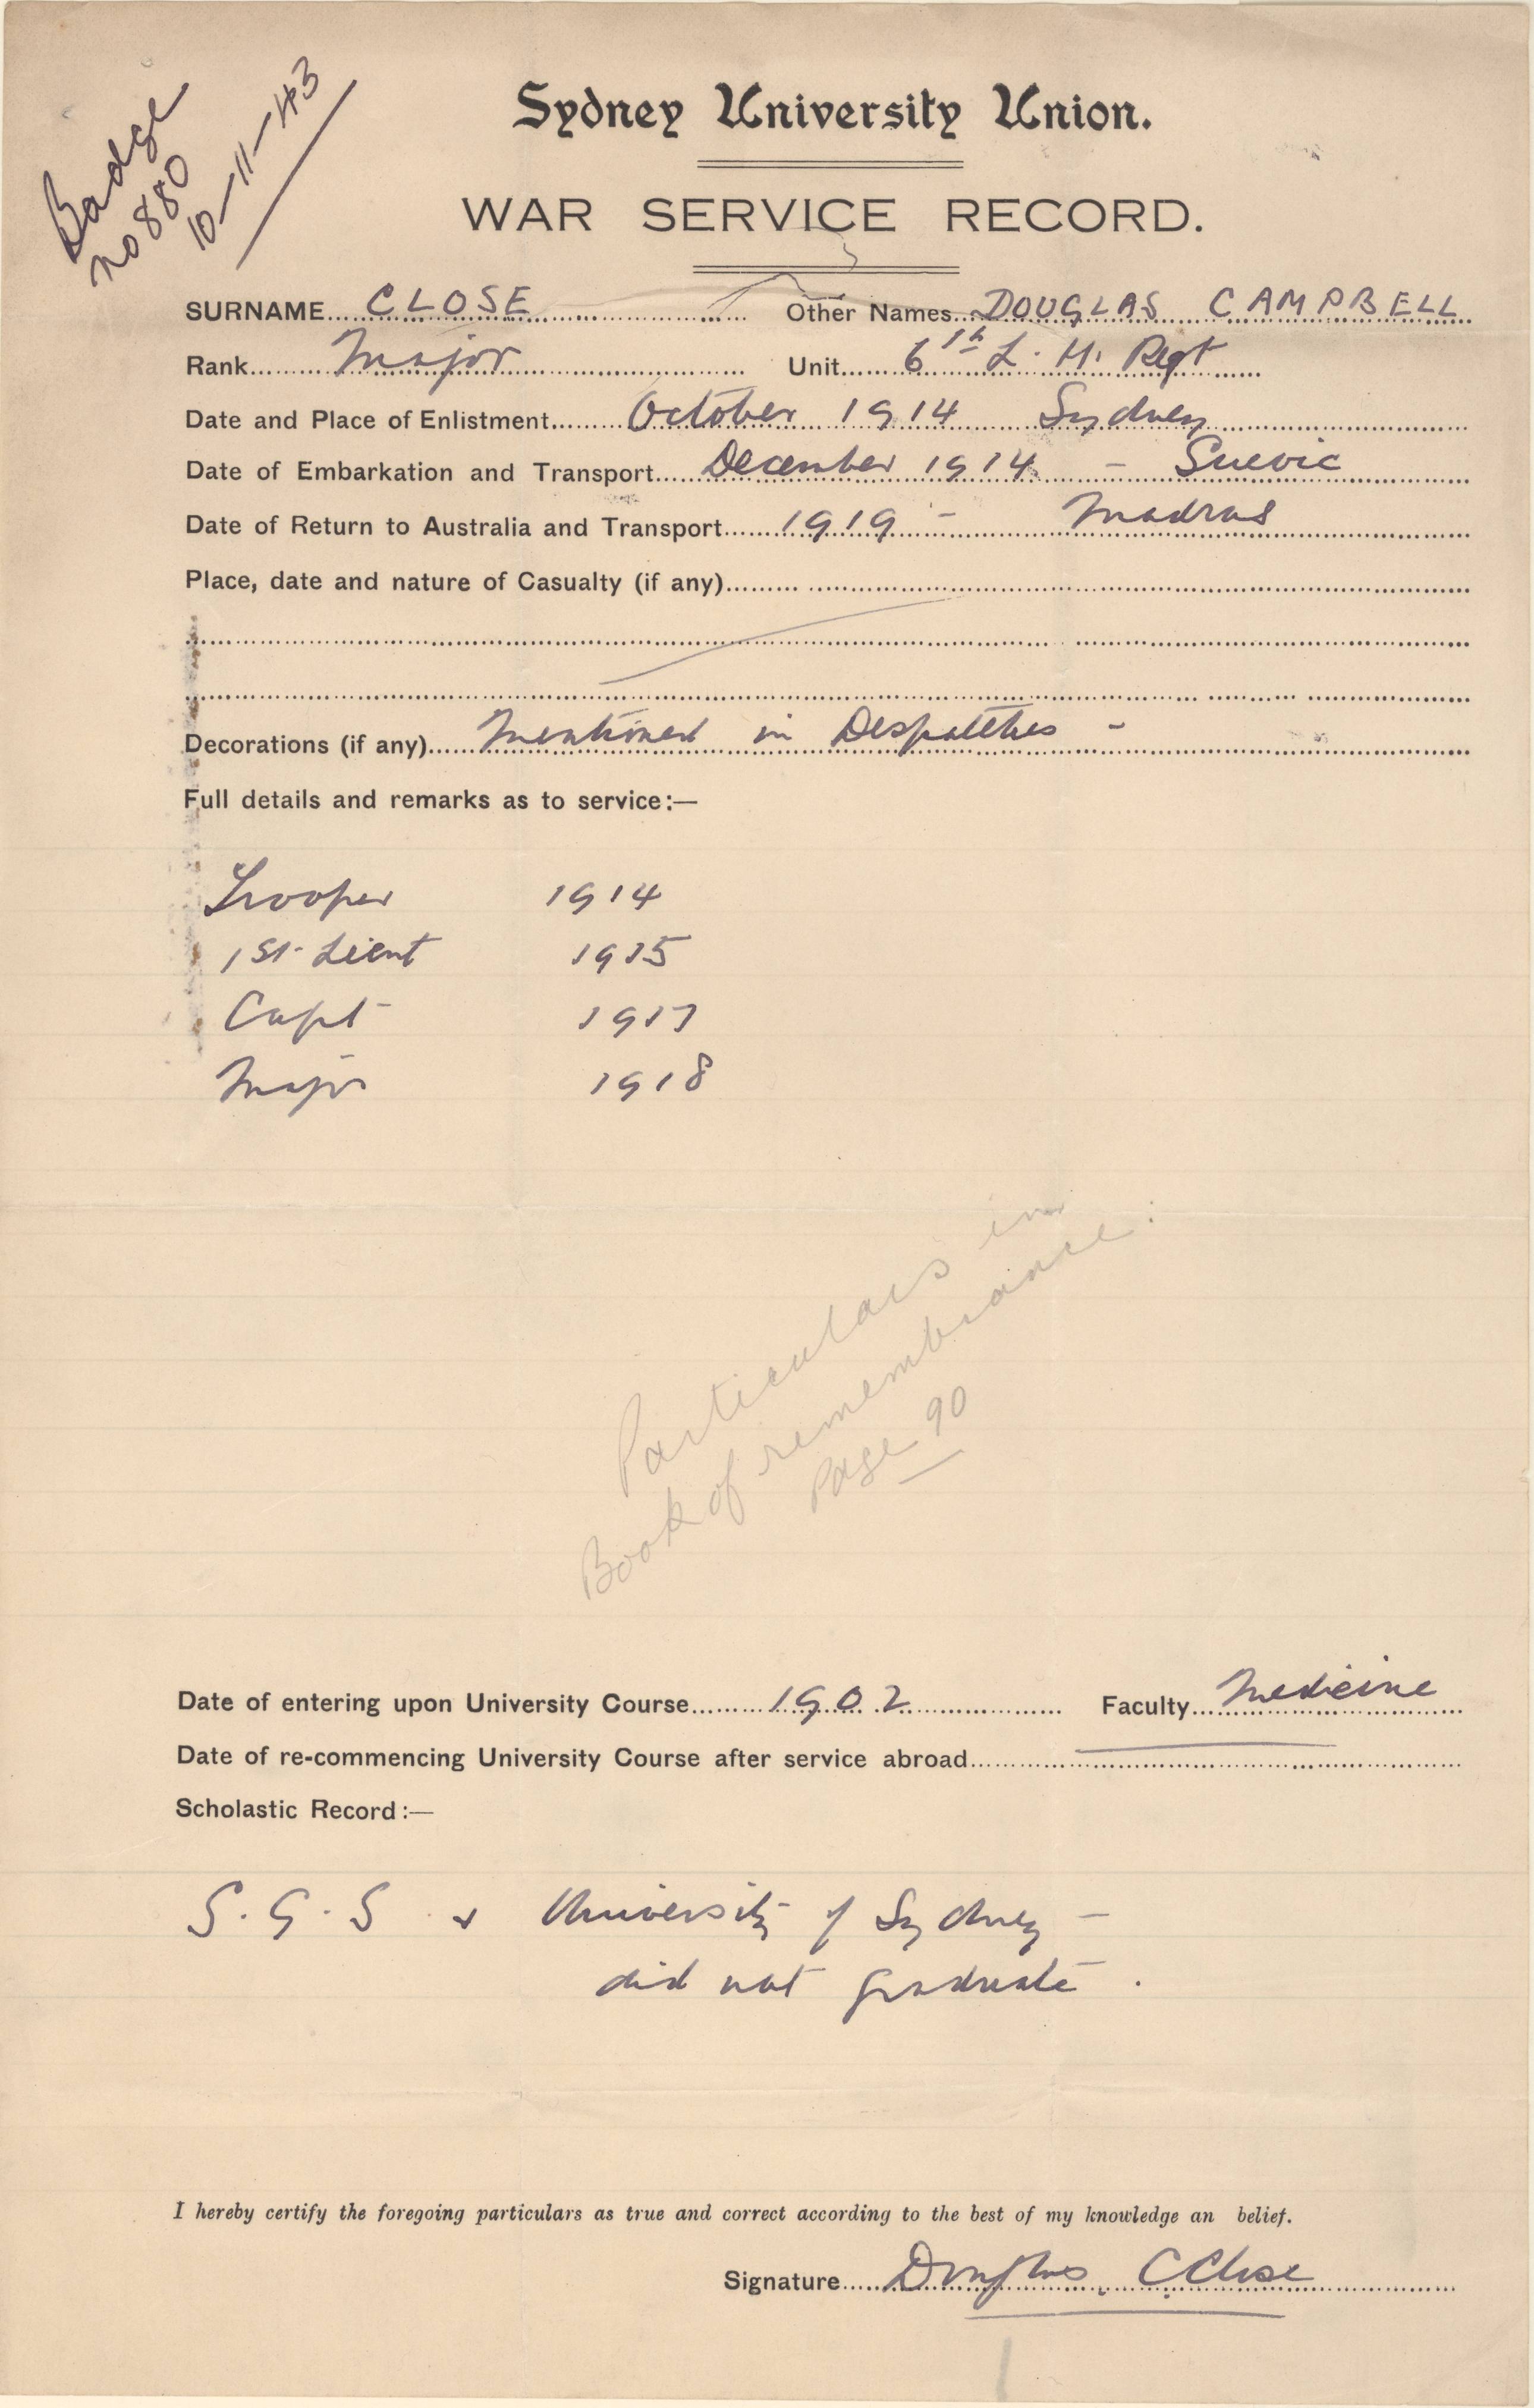 Badge
no 880
10-11-43
Sydney University Union.
WAR SERVICE RECORD.
SURNAME CLOSE Other Names DOUGLAS CAMPBELL
Rank Major Unit 6th L. H. Regt
Date and Place of Enlistment October 1914 Sydney
Date of Embarkation and Transport December 1914 - Suevic
Date of Return to Australia and Transport 1919 - Madras
Place, date and nature of Casualty (if any)
Decorations (if any) Mentioned in Despatches -
Full details and remarks as to service:—
Trooper 1914
1st Lieut 1915
Capt 1917
Major 1918
Particulars in
Book of remembrance.
Page 90
Date of entering upon University Course 1902 Faculty Medicine
Date of re-commencing University Course after service abroad
Scholastic Record:—
S.G.S & University of Sydney -
did not graduate.
I hereby certify the foregoing particulars as true and correct according to the best of my knowledge an belief.
Signature Douglas C Close